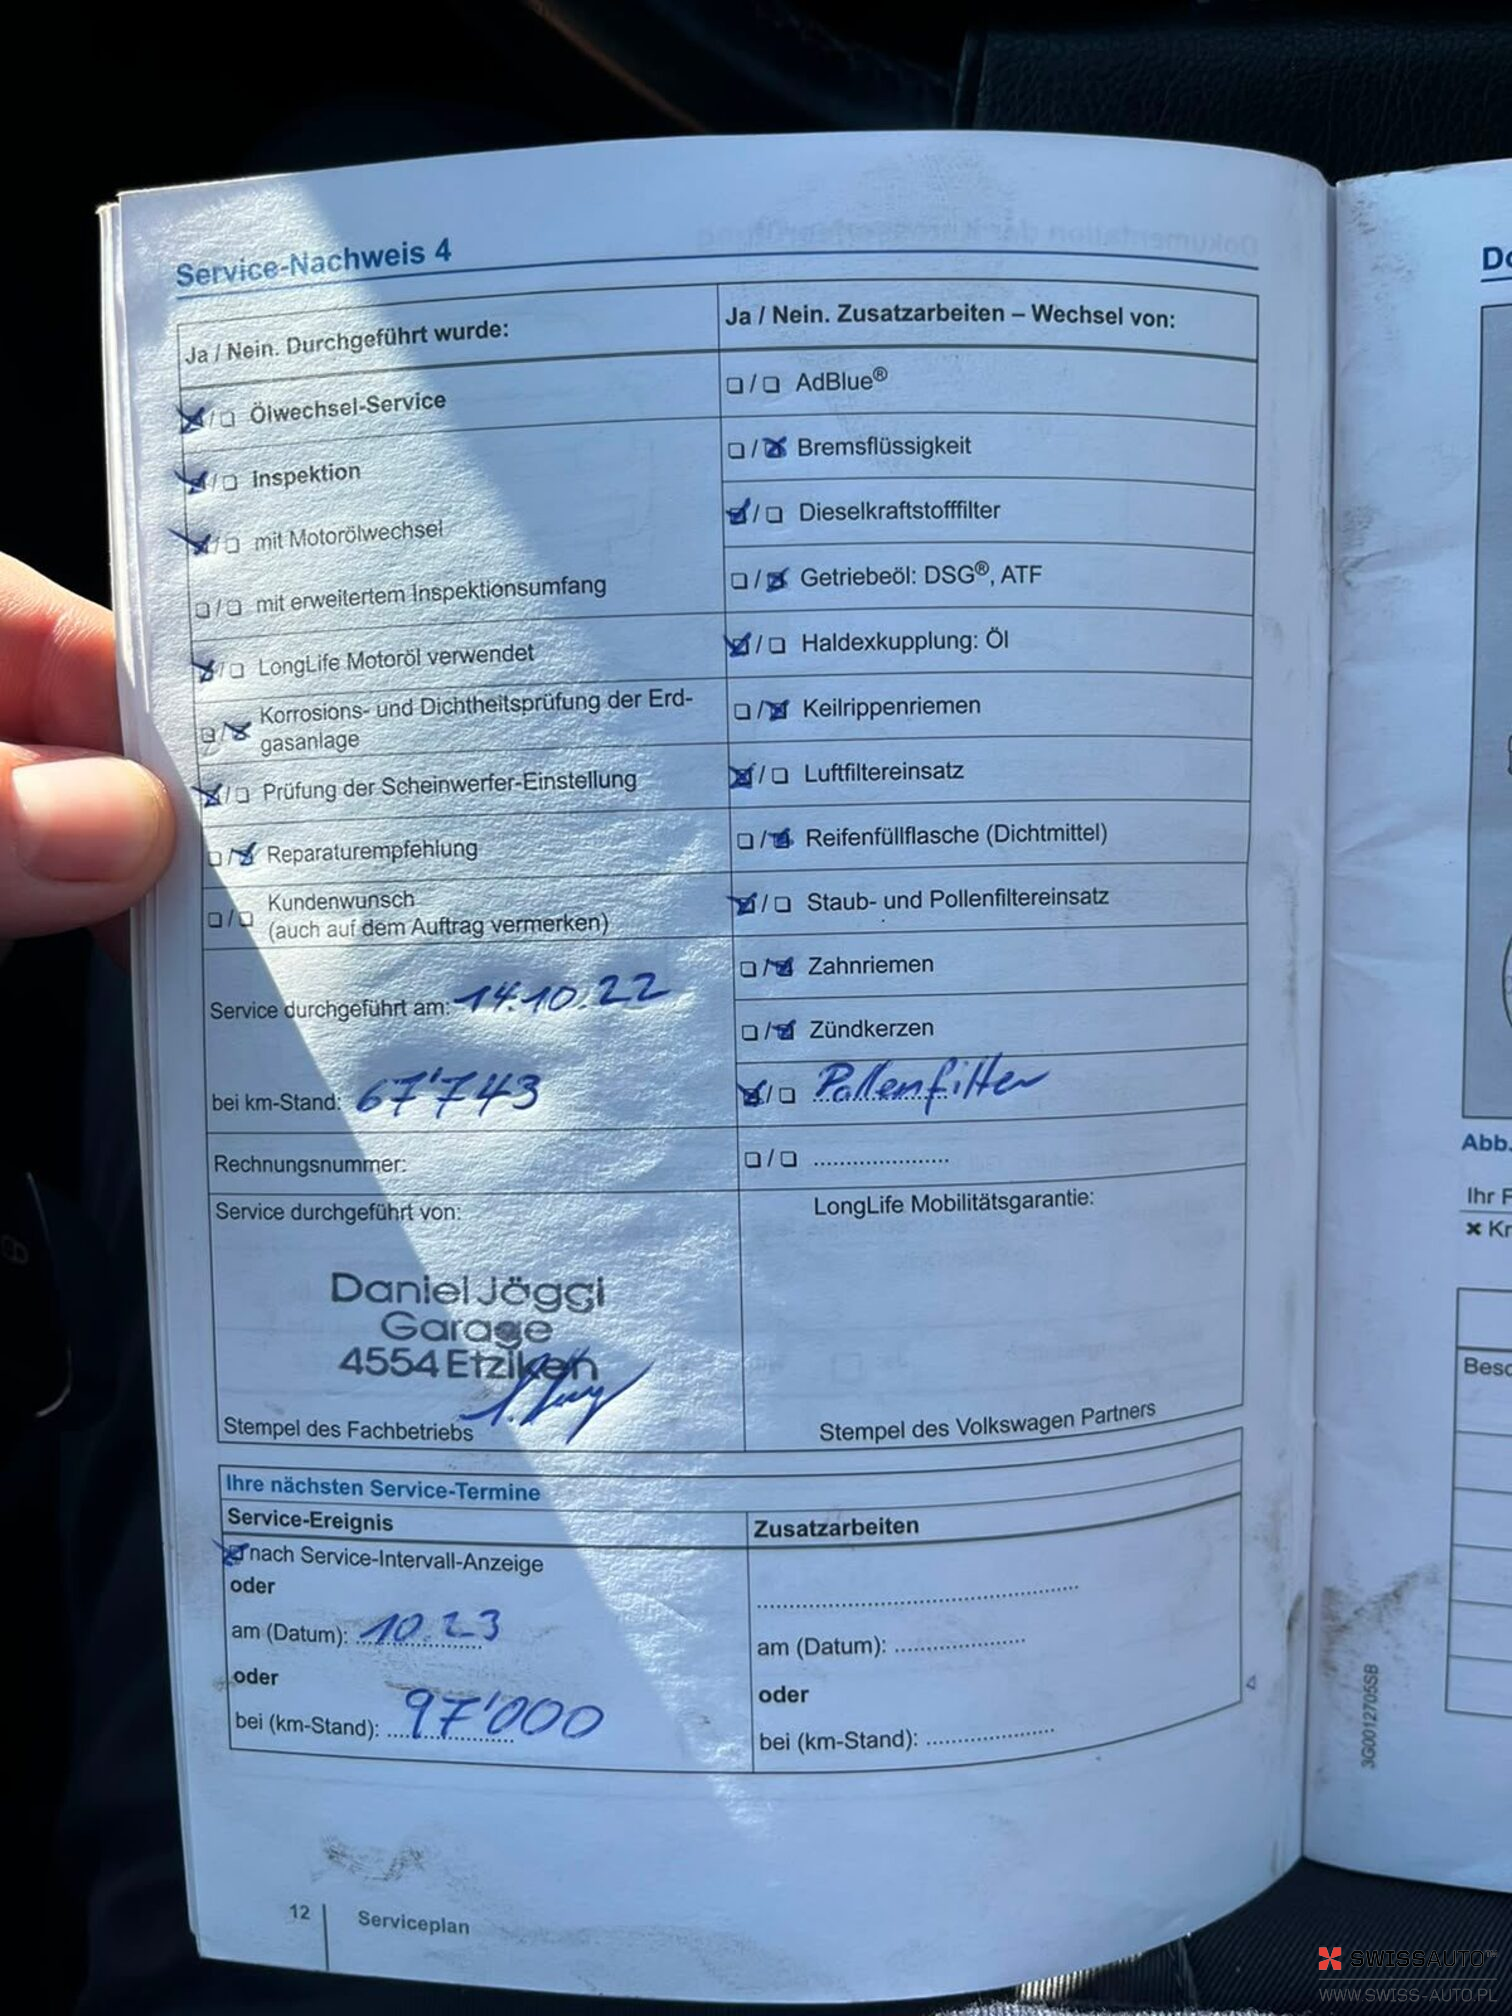 Service-Nachweis 4
Ja / Nein. Durchgeführt wurde:
☒/☐ Ölwechsel-Service
☒/☐ Inspektion
☒/☐ mit Motorölwechsel
☐/☐ mit erweitertem Inspektionsumfang
☒/☐ LongLife Motoröl verwendet
☐/☒ Korrosions- und Dichtheitsprüfung der Erd-
gasanlage
☒/☐ Prüfung der Scheinwerfer-Einstellung
☐/☒ Reparaturempfehlung
☐/☐ Kundenwunsch
(auch auf dem Auftrag vermerken)
Service durchgeführt am: 14.10.22
bei km-Stand: 67'743
Rechnungsnummer:
Service durchgeführt von:
Daniel Jäggi
Garage
4554 Etziken
Stempel des Fachbetriebs
Ja / Nein. Zusatzarbeiten – Wechsel von:
☐/☐ AdBlue®
☐/☒ Bremsflüssigkeit
☒/☐ Dieselkraftstofffilter
☐/☒ Getriebeöl: DSG®, ATF
☒/☐ Haldexkupplung: Öl
☐/☒ Keilrippenriemen
☒/☐ Luftfiltereinsatz
☐/☒ Reifenfüllflasche (Dichtmittel)
☒/☐ Staub- und Pollenfiltereinsatz
☐/☒ Zahnriemen
☐/☒ Zündkerzen
☒/☐ Pollenfilter
☐/☐ .....................
LongLife Mobilitätsgarantie:
Stempel des Volkswagen Partners
Ihre nächsten Service-Termine
Service-Ereignis
☒ nach Service-Intervall-Anzeige
oder
am (Datum): 10.23
oder
bei (km-Stand): 97'000
Zusatzarbeiten
..................................................
am (Datum): .....................
oder
bei (km-Stand): .....................
12 Serviceplan
3G0012705SB
Abb.
Ihr F
✖ Kr
SWISSAUTO
WWW.SWISS-AUTO.PL